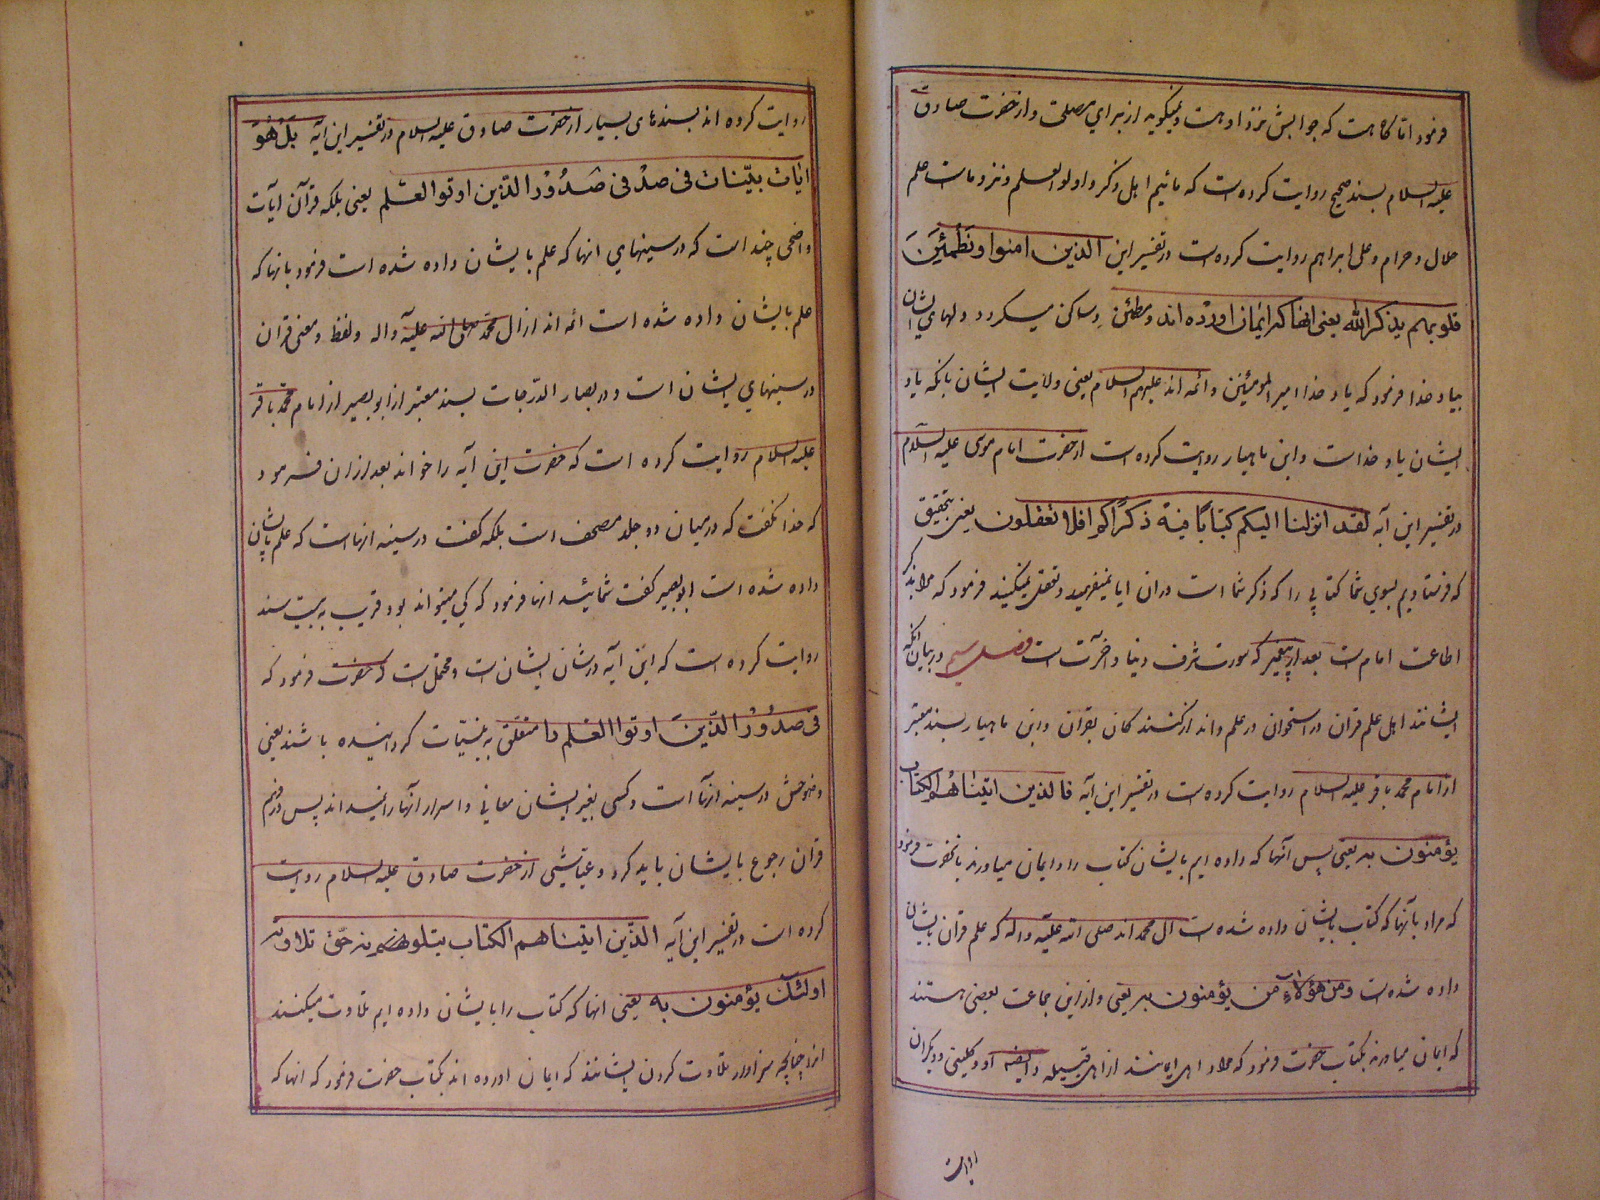 فرمود اما گاه هست که جوابش نزد او هست و نمیگوید از برای مصلحتی و از حضرت صادق
علیه السلام بسند صحیح روایت کرده است که مائیم اهل ذکر و اولو العلم و نزد ماست علم
حلال و حرام و علی ابراهیم روایت کرده است در تفسیر این الذین امنوا و تطمئن
قلوبهم بذکر الله یعنی انها که ایمان اورده اند و مطمئن و ساکن میگردد دلهای ایشان
بیاد خدا فرمود که یاد خدا امیر المومنین و ائمه اند علیهم السلام یعنی ولایت ایشان بانکه یاد
ایشان یاد خداست و ابن ماهیار روایت کرده است از حضرت امام موسی علیه السلام
در تفسیر این آیه لقد انزلنا الیکم کتابا فیه ذکرکم افلا تعقلون یعنی بتحقیق
که فرستادیم بسوی شما کتابی را که ذکر شما است دران ایا نمیفهمید و تعقل نمیکنید فرمود که مراد بذکر
اطاعت امام است بعد از پیغمبر که مورث شرف دنیا و آخرت است فصل سیم در بیان آنکه
ایشانند اهل علم قران در علم و انذار کنندکان بقران و ابن ماهیار بسند معتبر
از امام محمد باقر علیه السلام روایت کرده است در تفسیر این آیه فالذین اتیناهم الکتاب
یؤمنون به یعنی پس آنها که داده ایم بایشان کتاب را و ایمان میاورند بانحضرت فرمود
که مراد بآنها که کتاب بایشان داده شده است ال محمد اند صلی الله علیه و اله که علم قران بایشان
داده شده است و من هؤلاء من یؤمنون به یعنی و از این جماعت بعضی هستند
که ایمان میاورند بکتاب حضرت فرمود که مراد اهل ایمانند از اهل قبیله و کلینی و دیکران
روایت
روایت کرده اند بسندهای بسیار از حضرت صادق علیه السلام در تفسیر این آیه بل هو
ایات بینات فی صد فی صدور الذین اوتوا العلم یعنی بلکه قرآن آیات
واضحی چند است که در سینهای انها که علم بایشان داده شده است فرمود بانها که
علم بایشان داده شده است ائمه اند از ال محمد صلی الله علیه و اله و لفظ و معنی قران
در سینهای ایشان است و در بصار الدرجات بسند معتبر از ابو بصیر از امام محمد باقر
علیه السلام روایت کرده است که حضرت این آیه را خواند بعد ازان فرمود
که خدا نگفت که در میان دو جلد مصحف است بلکه گفت در سینه انهاست که علم بایشان
داده شده است ابو بصیر گفت شمائید انها فرمود که کی میتواند بود و قریب به بیست سند
روایت کرده است که این آیه در شان ایشان است و محتمل است که حضرت فرمود که
فی صدور الذین اوتوا العلم را متعلق به بینات گردانیده باشند یعنی
وضوحش در سینه انها است و کسی بغیر ایشان معانی و اسرار انها را نمیداند پس در فهم
قران رجوع بایشان باید کرد و عیاشی از حضرت صادق علیه السلام روایت
کرده است در تفسیر این آیه الذین اتیناهم الکتاب یتلونه حق تلاوته
اولئک یؤمنون به یعنی انها که کتاب را بایشان داده ایم تلاوت میکنند
انرا چنانچه سزاوار تلاوت کردن ایشانند که ایمان اورده اند بکتاب حضرت فرمود که انها که